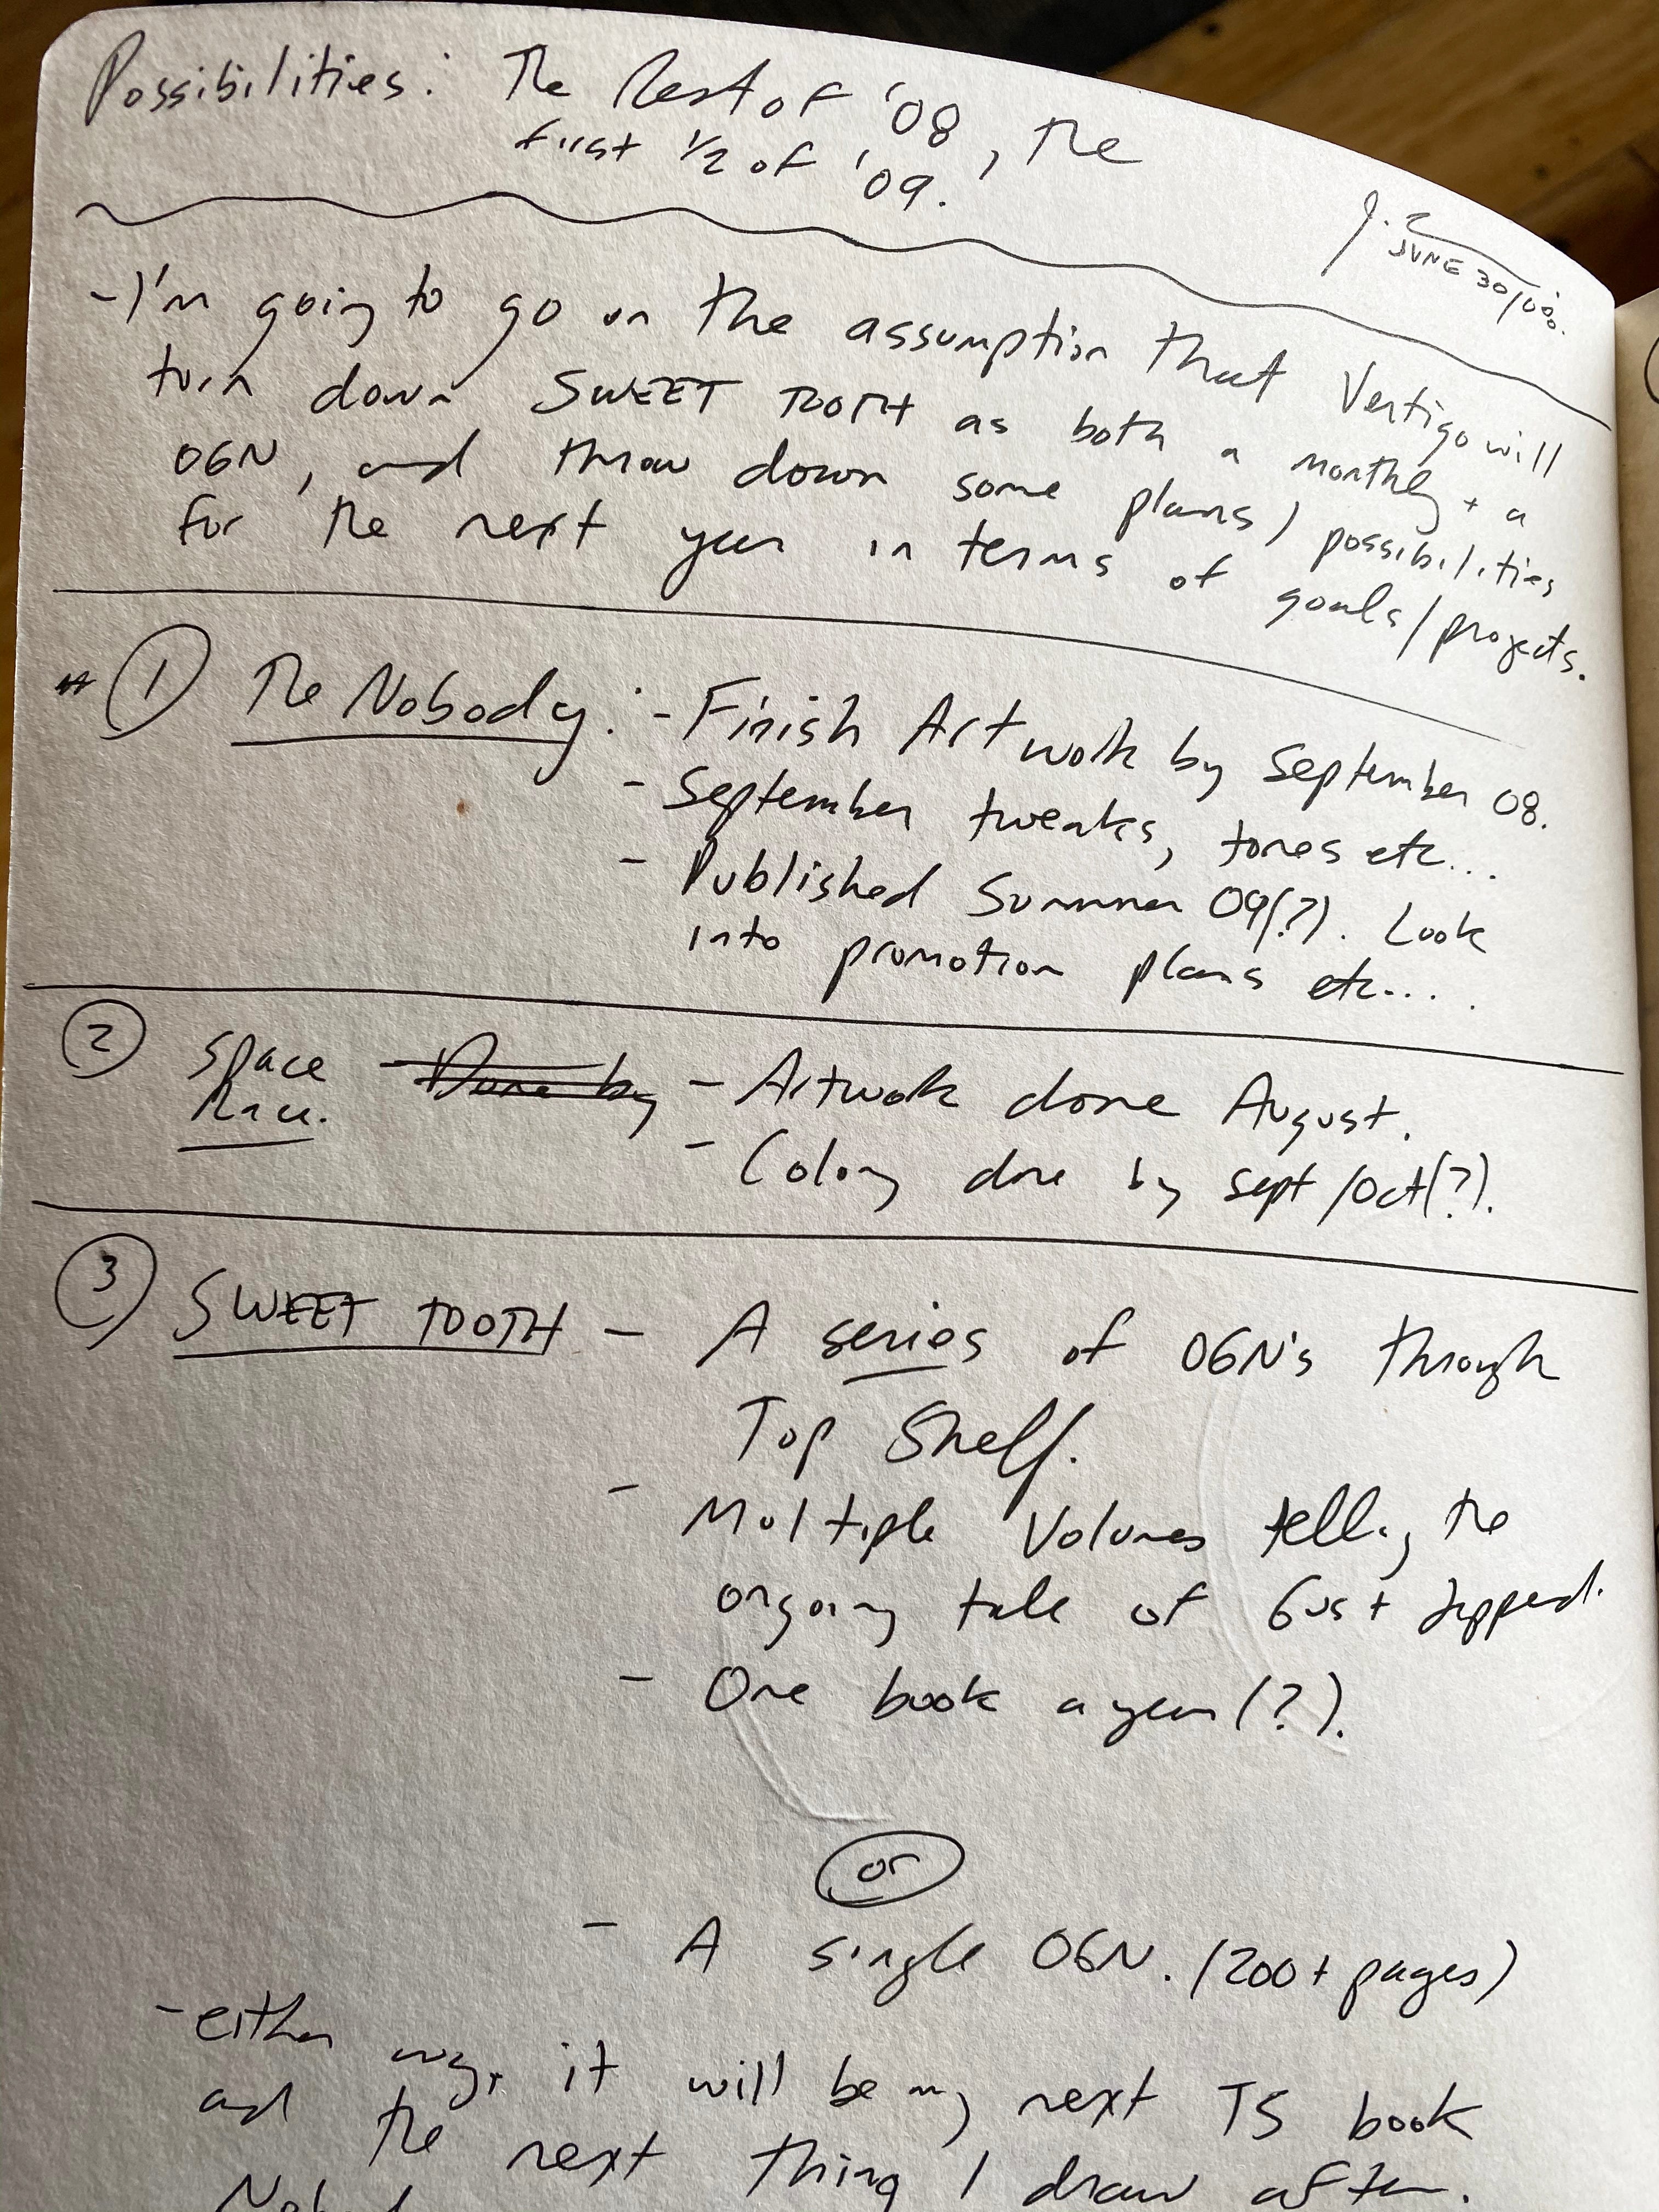 Possibilities: The Rest of '08, The
first 1/2 of '09.
JUNE 30/08.
- I'm going to go on the assumption that Vertigo will
turn down SWEET TOOTH as both a monthly + a
OGN, and throw down some plans/possibilities
for the next year in terms of goals/projects.
① The Nobody: - Finish Artwork by September 08.
- September tweaks, tones etc...
- Published Summer 09(?). Look
into promotion plans etc....
② Space - Artwork done August.
Race.
- Coloring done by sept/Oct(?).
③ SWEET TOOTH - A series of OGN's through
Top Shelf.
- Multiple Volumes telling the
ongoing tale of Gus + Jepperd.
- One book a year(?).
or
- A single OGN. (200+ pages)
- either way, it will be my next TS book
and the next thing I draw after